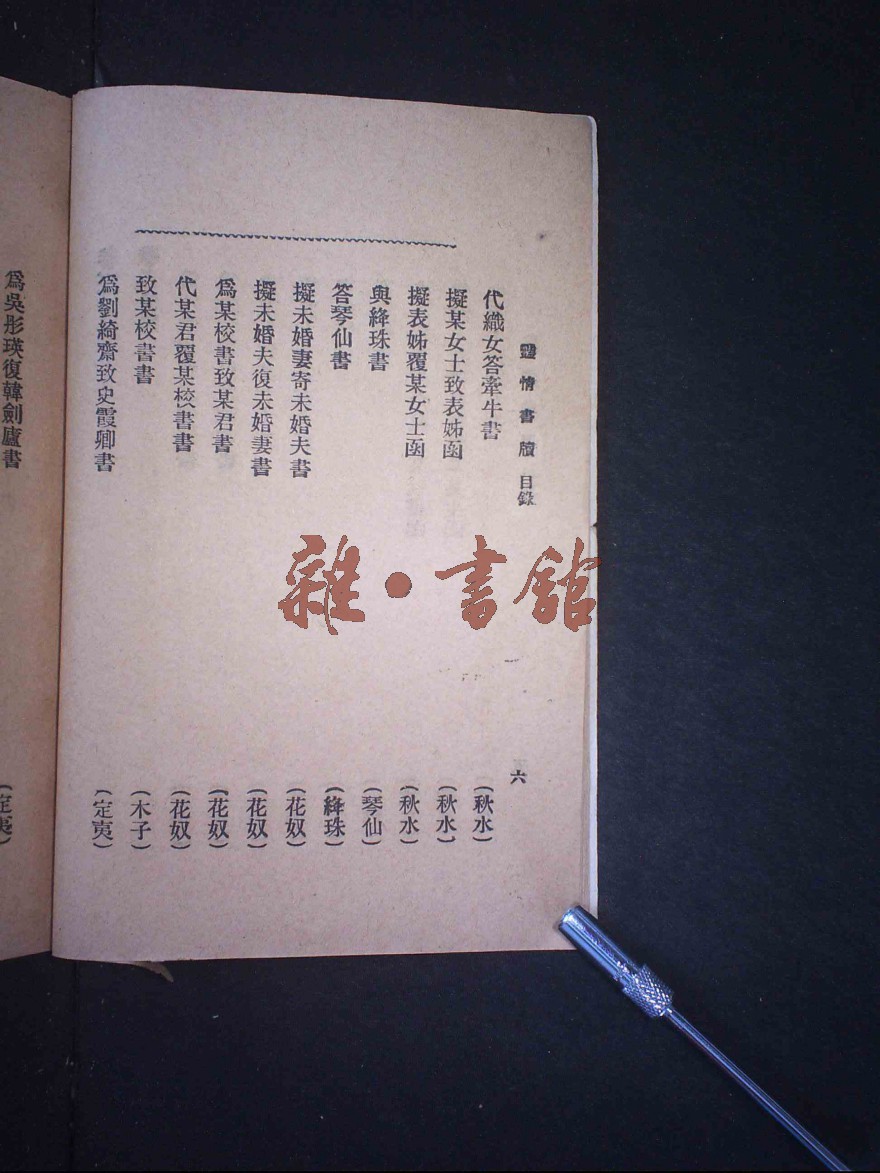 豔情書牘 目錄 六
代織女答牽牛書 (秋水)
擬某女士致表姊函 (秋水)
擬表姊覆某女士函 (秋水)
與絳珠書 (琴仙)
答琴仙書 (絳珠)
擬未婚妻寄未婚夫書 (花奴)
擬未婚夫復未婚妻書 (花奴)
爲某校書致某君書 (花奴)
代某君覆某校書書 (花奴)
致某校書書 (木子)
爲劉綺齋致史霞卿書 (定夷)
爲吳彤瑛復韓劍廬書 (定夷)
雜·書館